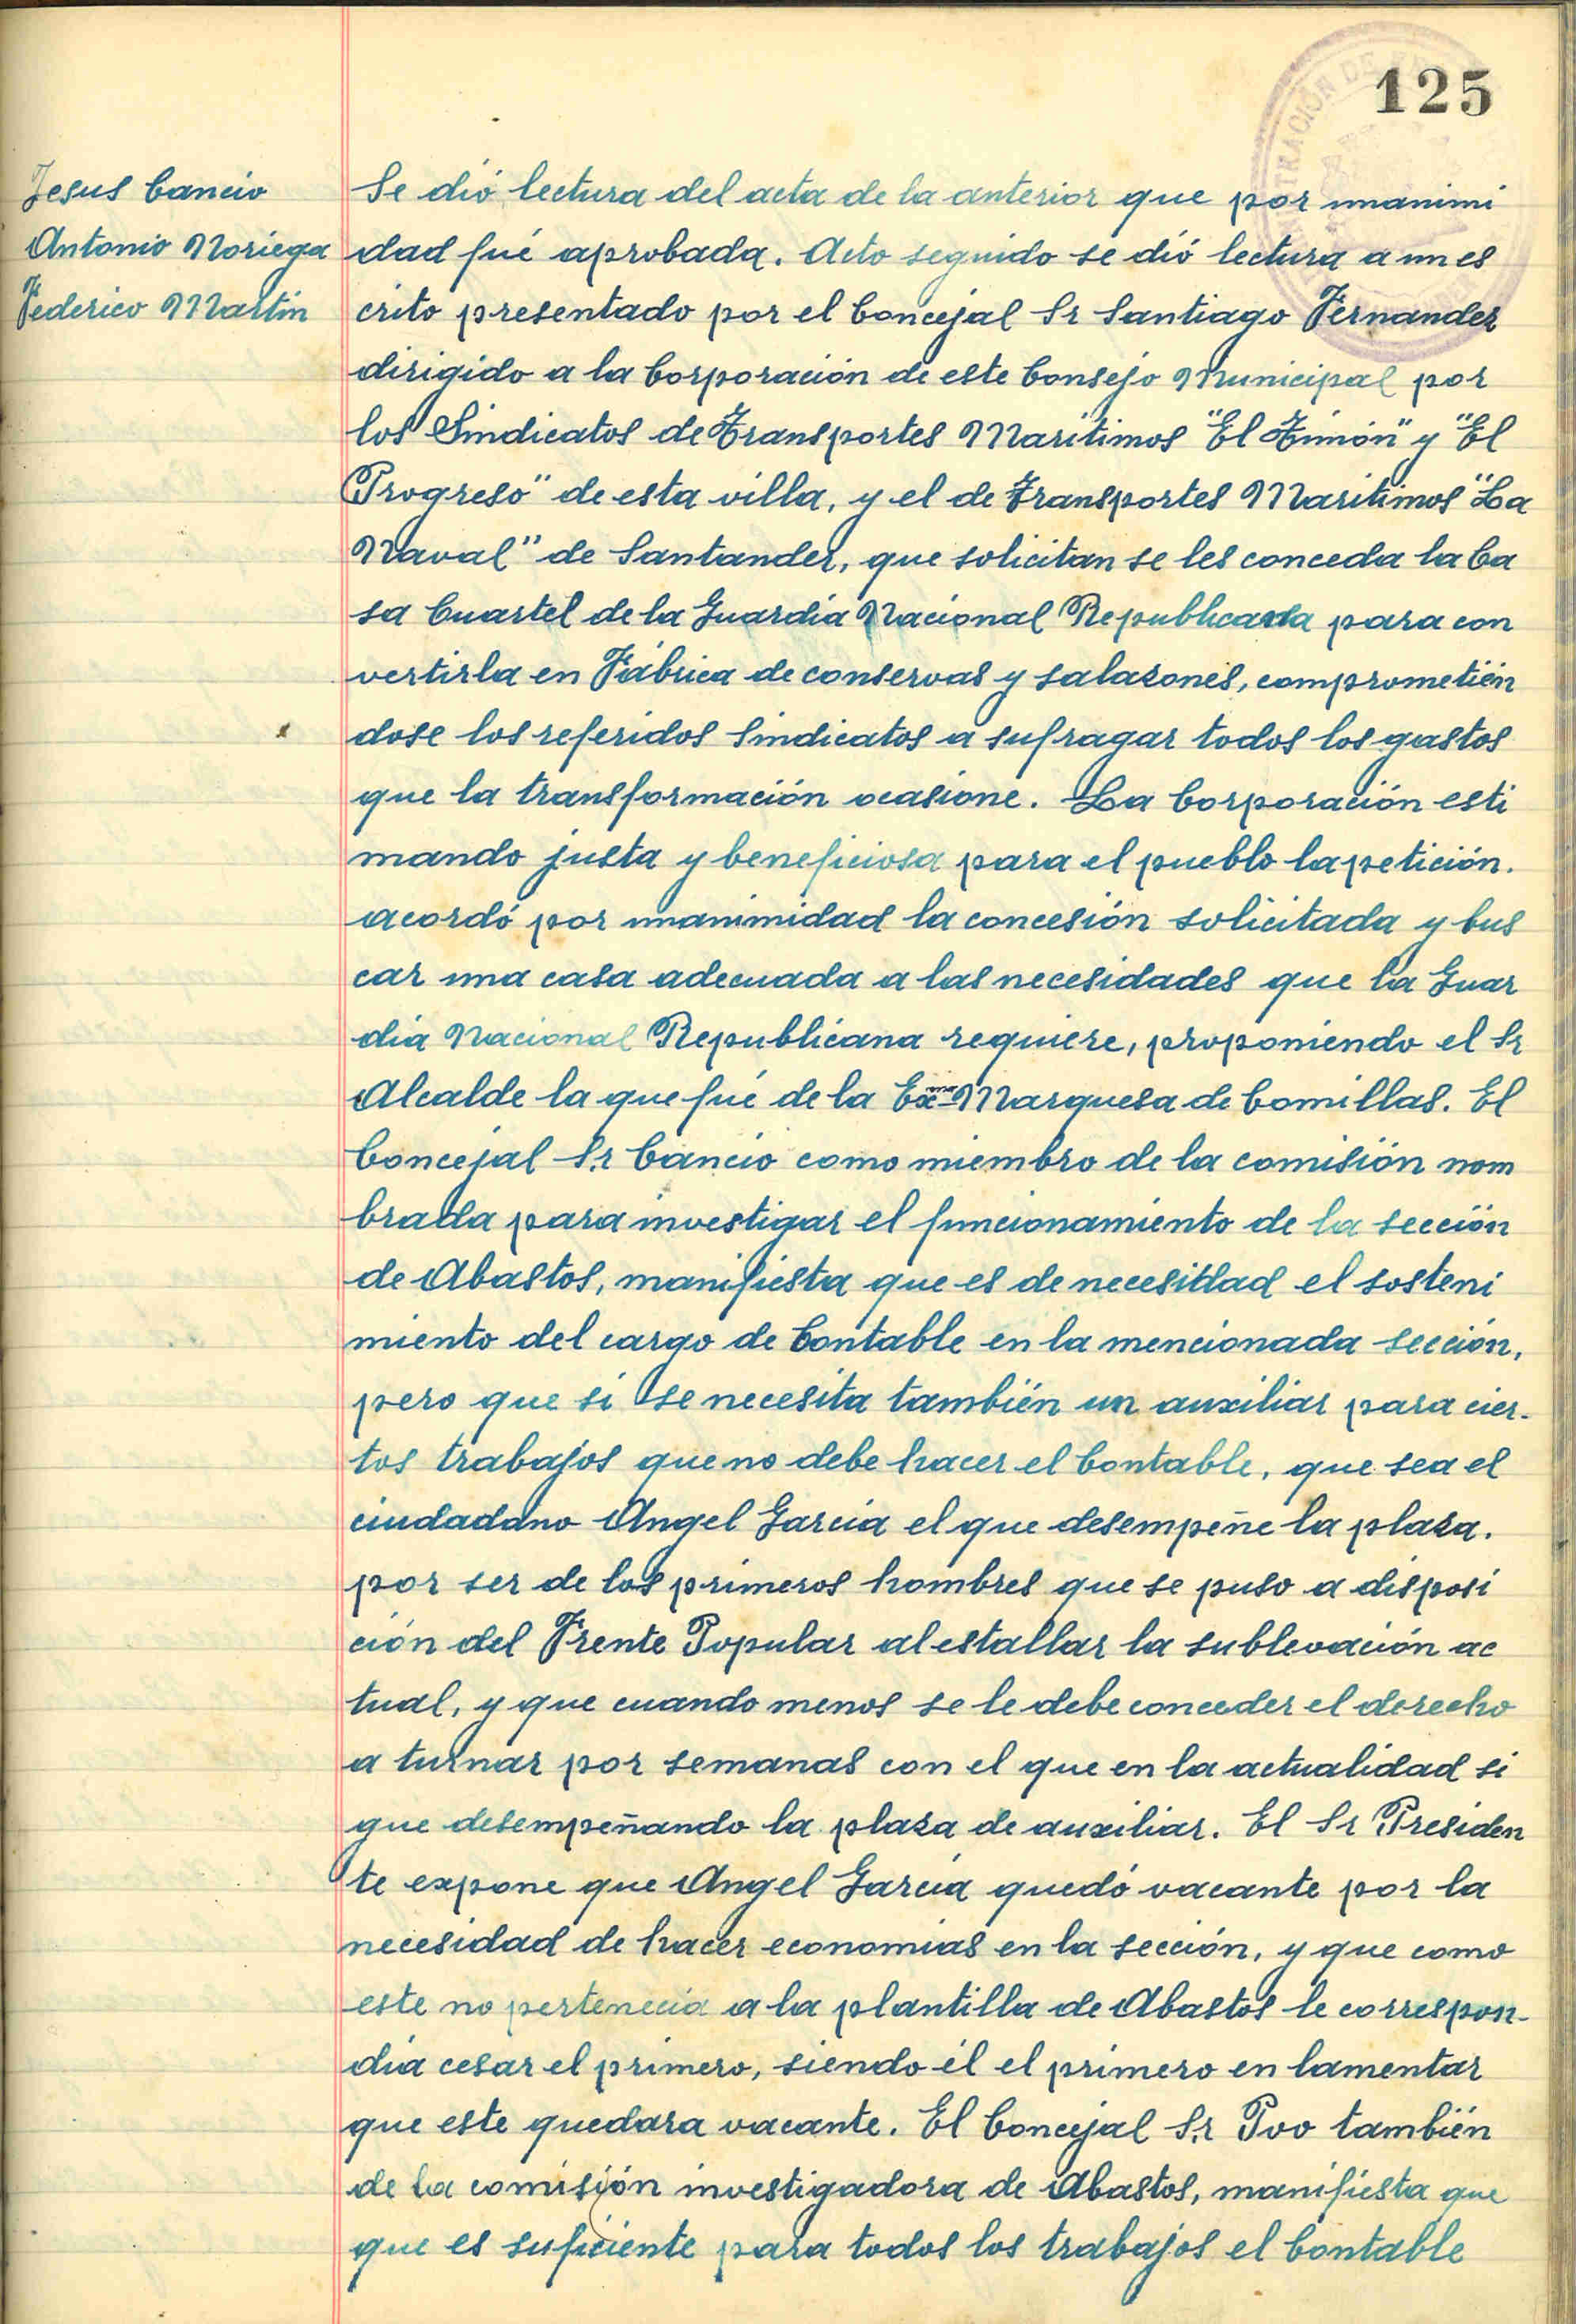 125
Jesus Cancio
Antonio Noriega
Federico Martin
Se dió lectura del acta de la anterior que por unanimi
dad fué aprobada. Acto seguido se dió lectura a un es
crito presentado por el Concejal Sr Santiago Fernandez
dirigido a la Corporación de este Consejo Municipal por
los Sindicatos de Transportes Maritimos "El Timón" y "El
Progreso" de esta villa, y el de Transportes Maritimos "La
Naval" de Santander, que solicitan se les conceda la Ca
sa Cuartel de la Guardia Nacional Republicana para con
vertirla en Fábrica de conservas y salazones, comprometién
dose los referidos Sindicatos a sufragar todos los gastos
que la transformación ocasione. La Corporación esti
mando justa y beneficiosa para el pueblo la petición.
acordó por unanimidad la concesión solicitada y bus
car una casa adecuada a las necesidades que la Guar
dia Nacional Republicana requiere, proponiendo el Sr
Alcalde la que fué de la Ex- Marquesa de Comillas. El
Concejal Sr Cancio como miembro de la comisión nom
brada para investigar el funcionamiento de la sección
de Abastos, manifiesta que es de necesidad el sosteni
miento del cargo de Contable en la mencionada sección,
pero que si se necesita también un auxiliar para cier-
tos trabajos que no debe hacer el Contable, que sea el
ciudadano Angel García el que desempeñe la plaza.
por ser de los primeros hombres que se puso a disposi
ción del Frente Popular al estallar la sublevación ac
tual, y que cuando menos se le debe conceder el derecho
a turnar por semanas con el que en la actualidad si
gue desempeñando la plaza de auxiliar. El Sr Presiden
te expone que Angel García quedó vacante por la
necesidad de hacer economias en la sección, y que como
este no pertenecia a la plantilla de Abastos le correspon-
día cesar el primero, siendo él el primero en lamentar
que este quedara vacante. El Concejal Sr Poo también
de la comisión investigadora de Abastos, manifiesta que
que es suficiente para todos los trabajos el Contable